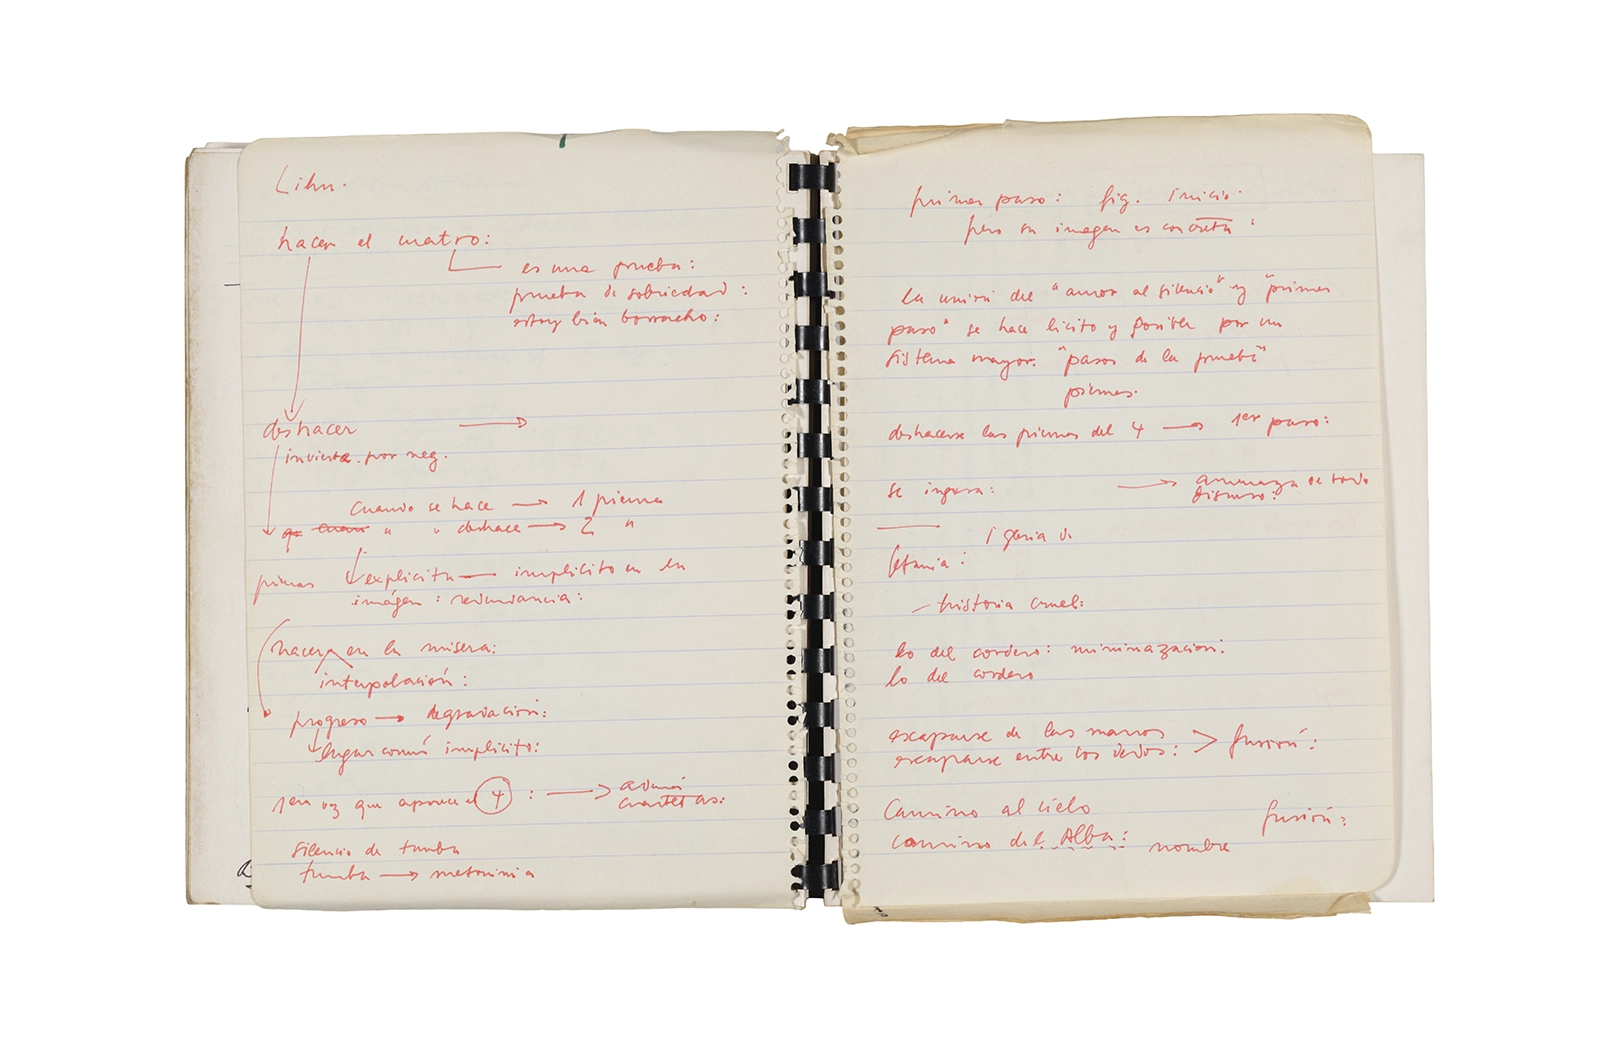 Lihn.
hacer el cuatro:
es una prueba:
prueba de sobriedad:
estoy bien borracho:
deshacer →
invierte por neg.
cuando se hace → 1 pierna
" " deshace → 2 "
piernas explicita — implicito en la
imágen: redundancia:
hacer en la misera:
interpolación:
progreso → degradación:
lugar común implicito:
1era vez que aparece el 4 : →
cuartetas:
silencio de tumba
tumba → metonimia
primer paso: fig. Inicio.
pero su imagen es concreta:
la unión del "amor al silencio" y "primer
paso" se hace licito y posible por un
sistema mayor. "pasos de la prueba"
piernas.
deshacerse las piernas del 4 → 1er paso:
se ingresa: → amenaza de todo
discurso:
letania:
– historia cruel:
lo del cordero:
lo del cordero
escaparse de las manos
escaparse entre los dedos: > fusión:
Camino al cielo
camino del Alba: nombre
fusión: